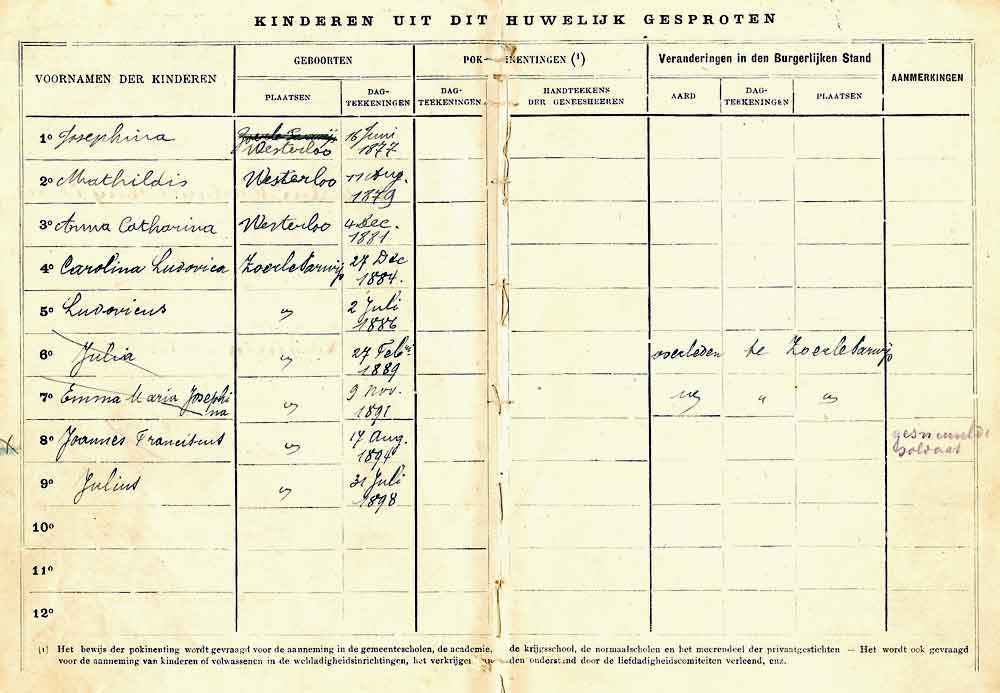 KINDEREN UIT DIT HUWELIJK GESPROTEN
VOORNAMEN DER KINDEREN
GEBOORTEN
POK INENTINGEN (¹)
Veranderingen in den Burgerlijken Stand
AANMERKINGEN
PLAATSEN
DAG-TEEKENINGEN
DAG-TEEKENINGEN
HANDTEEKENS DER GENEESHEEREN
AARD
DAG-TEEKENINGEN
PLAATSEN
1° Josephina Zoerle Parwijs Westerloo 16 Juni 1877
2° Mathildis Westerloo 11 Aug. 1879
3° Anna Catharina Westerloo 4 Dec. 1881
4° Carolina Ludovica Zoerle Parwijs 27 Dec 1884.
5° Ludovicus " 2 Juli 1886
6° Julia " 27 Feb. 1889 overleden te Zoerle Parwijs
7° Emma Maria Josephina " 9 Nov. 1891 " " "
8° Joannes Franciscus " 17 Aug. 1894 soldaat
9° Julius " 31 Juli 1898
10°
11°
12°
(1) Het bewijs der pokinenting wordt gevraagd voor de aanneming in de gemeentescholen, de academie, de krijgsschool, de normaalscholen en het meerendeel der privaatgestichten — Het wordt ook gevraagd
voor de aanneming van kinderen of volwassenen in de weldadigheidsinrichtingen, het verkrijgen den onderstand door de liefdadigheidscomiteiten verleend, enz.